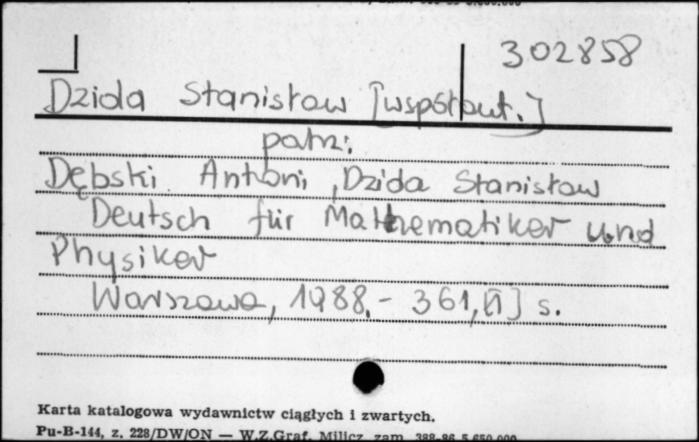 302858
Dzida Stanisław [współaut.]
patrz:
Dębski Antoni, Dzida Stanisław
Deutsch für Mathematiker und
Physiker
Warszawa, 1988.- 361,[1] s.
Karta katalogowa wydawnictw ciągłych i zwartych.
Pu-B-144, z. 228/DW/ON — W.Z.Graf. Milicz, zam. 388-86 5.650.000